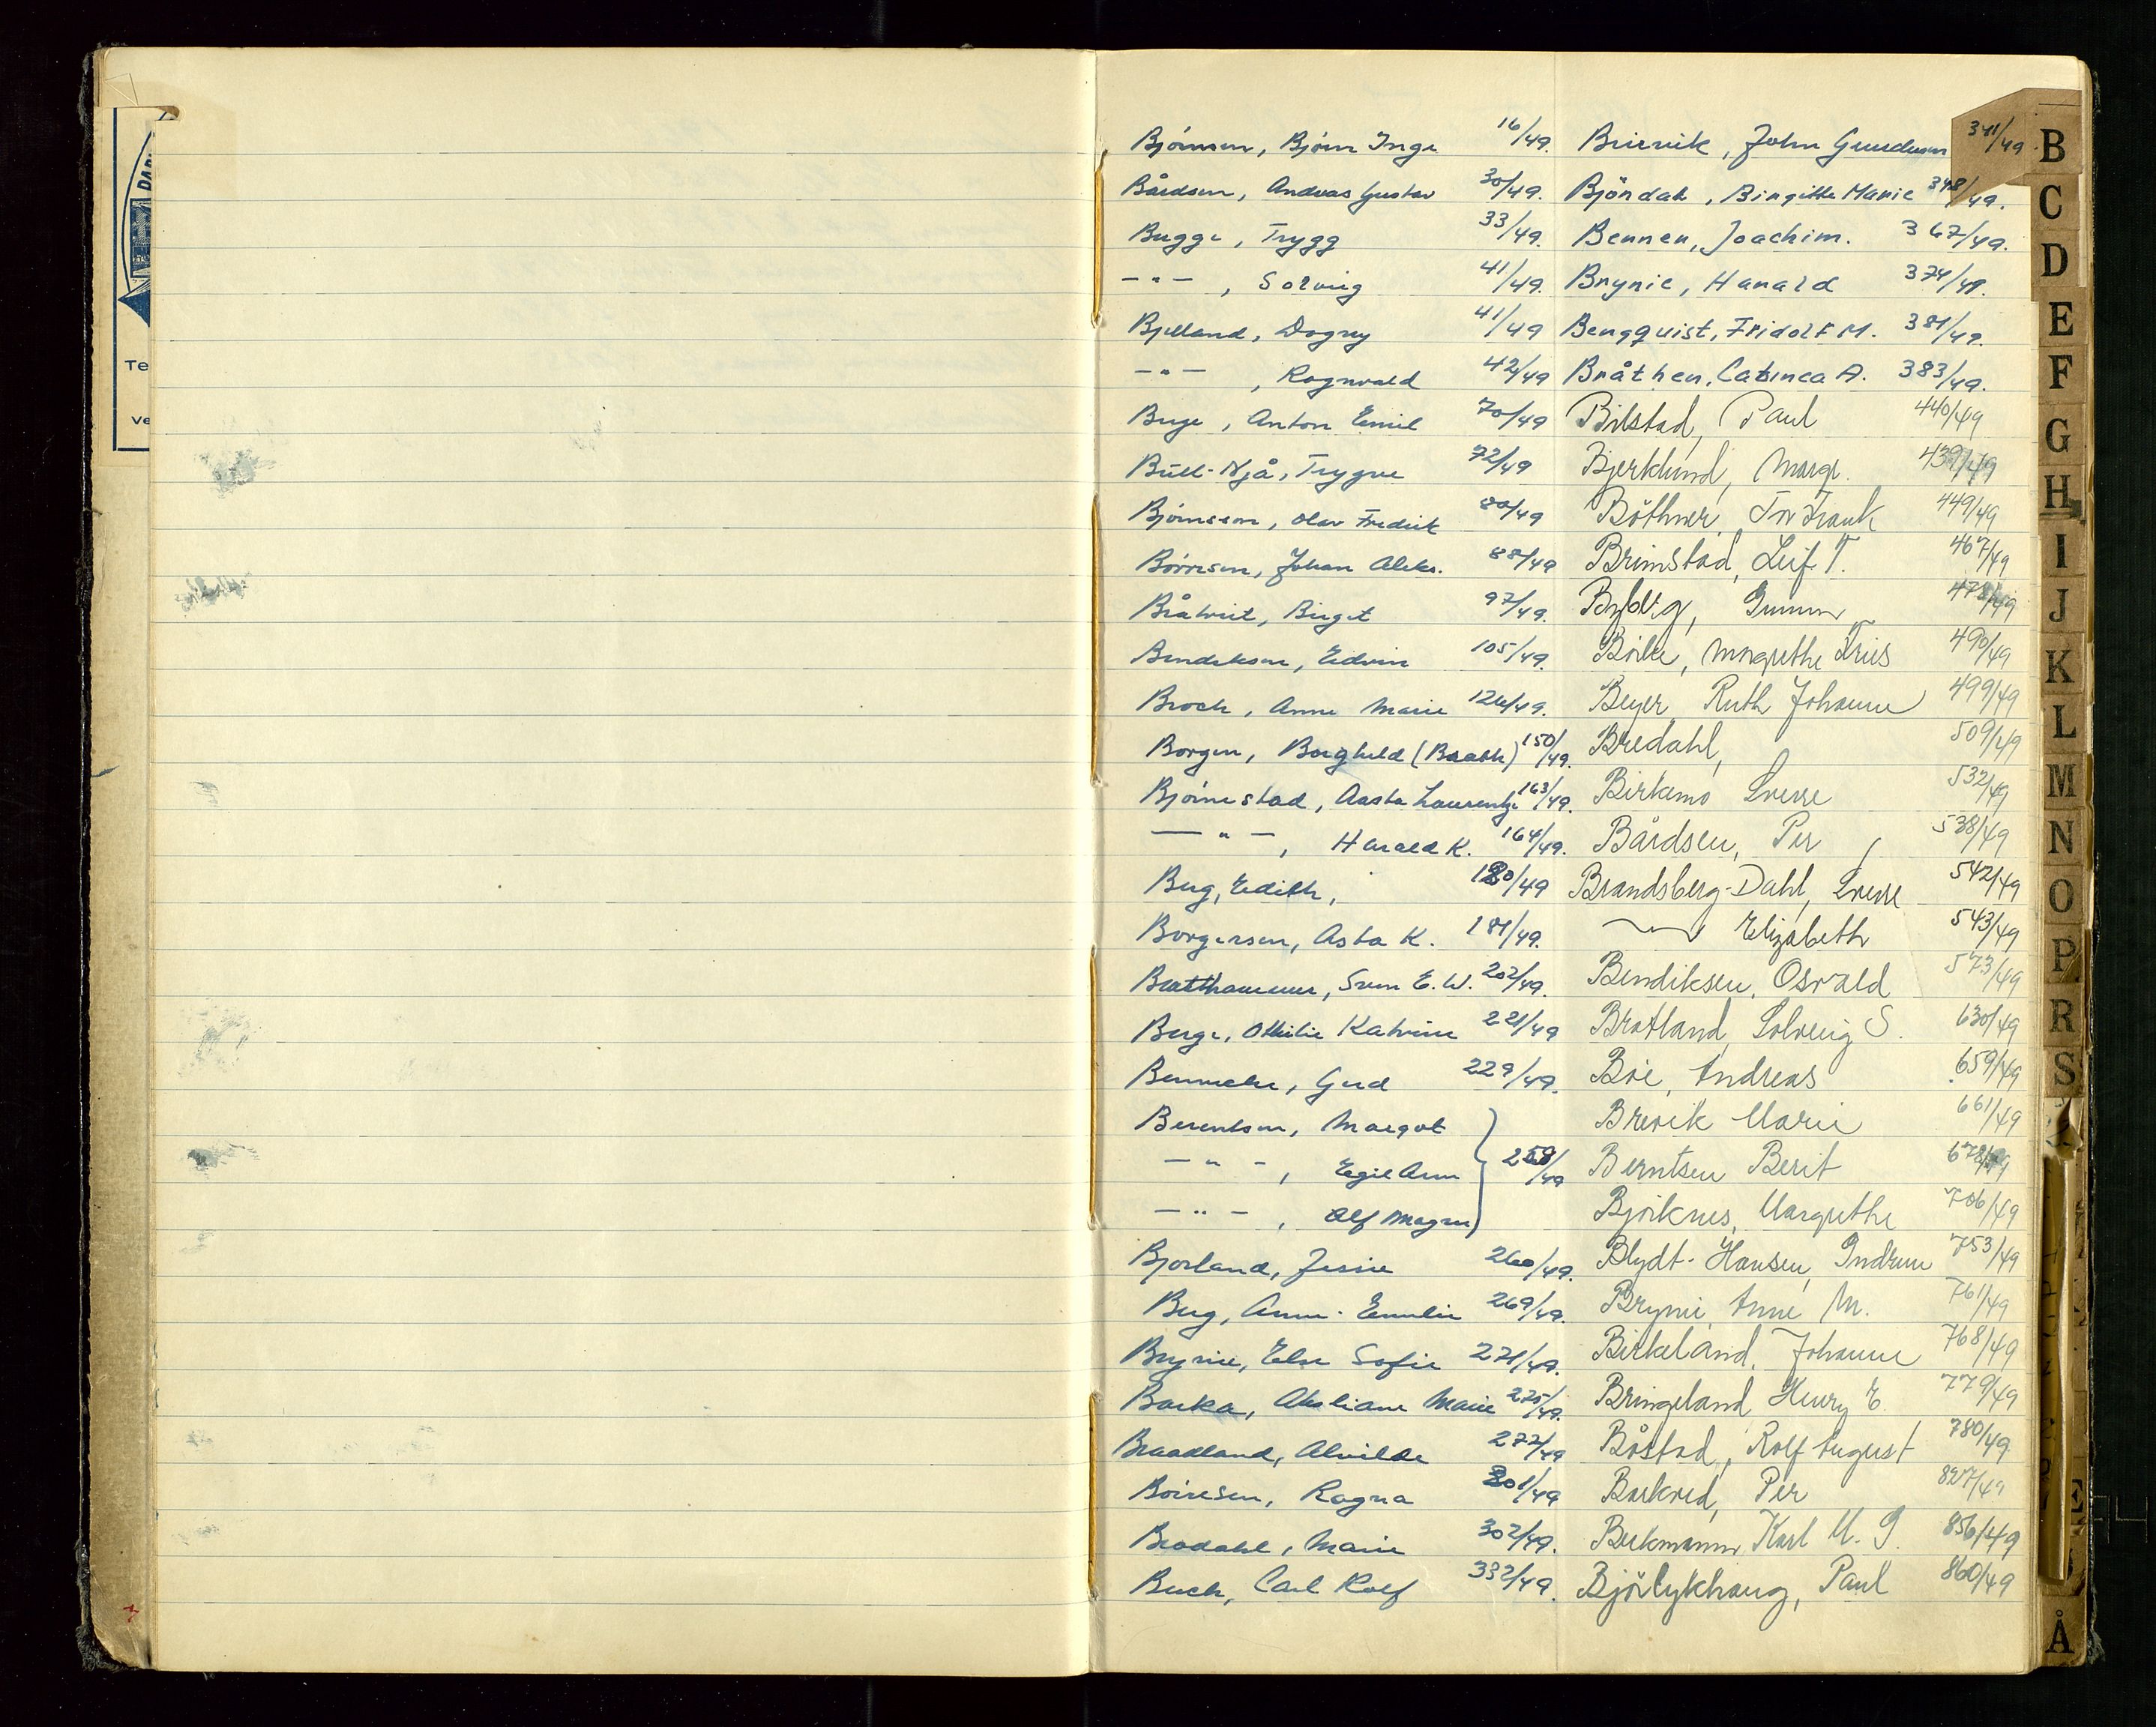 Bjørnsen, Bjørn Inge 16/49.
Bårdsen, Andreas Gustav 30/49.
Bugge, Trygg 33/49.
-"- , Solveig 41/49.
Bjelland, Dagny 41/49
-"- , Ragnvald 42/49
Buge, Anton Emil 70/49
Bull-Njå, Trygve 72/49
Bjørnsson, Olav Fredrik 80/49
Børresen, Johan Aleks. 88/49
Birgit 97/49.
Bendiksen, Edvin 105/49.
Broch, Anne Marie 126/49.
Borgen, Borghild (Braath) 150/49.
Bjørnestad, Aasta Laurentze 163/49.
-"- , Harald K. 164/49.
Berg, Edith, 180/49
Borgersen, Asta K. 181/49.
Bratthammer, Sven E. W. 202/49.
Berge, Othilie Katrine 221/49
Gerd 229/49.
Berentsen, Margot
-"- , Egil Arne 259/49
-"- , Alf Magne
Bjorland, Jessie 260/49.
Berg, Anne-Emelie 269/49.
Brynie, Else Sofie 271/49.
Barka, Marie 275/49.
Braadland, Alvilde 277/49
Børresen, Ragna 301/49
Brodahl, Marie 302/49.
Buch, Carl Rolf 332/49.
Brevik, John Gundersen 341/49.
Bjöndal, Birgitte Marie 348/49.
Bennen, Joachim. 367/49.
Brynie, Harald 374/49.
Bengquist, Fridolf M. 381/49.
Bråthen, Catinca A. 383/49.
Bilstad, Paul 440/49
Bjerklund, Marge. 439/49
Böthner, Frank 449/49
Brimstad, Leif T. 467/49
Gunnar
Margrethe Friis 490/49
Beyer Ruth Johanne 499/49
Bredahl, 509/49
Birkemo Sverre 532/49
Bårdsen, Per 538/49
Brandsberg-Dahl, Sverre 542/49
Elizabeth 543/49
Bendiksen, Osvald 573/49
Bratland, Solveig S. 630/49
Böe, Andreas 659/49
Brevik Marie 661/49
Berntsen Berit 678/49
Björknes, Margrethe 706/49
Blydt-Hansen, Gudrun 753/49
Brynie, Anne M. 761/49
Birkeland, Johanne 768/49
Bringeland Henry E. 779/49
Båstad, Rolf August 780/49
Barkved, Per 827/49
Berkmann, Karl M. G. 856/49
Björlykhaug, Paul 860/49
B
C
D
E
F
G
H
I
J
K
L
M
N
O
P
R
S
Å
Te
Ve